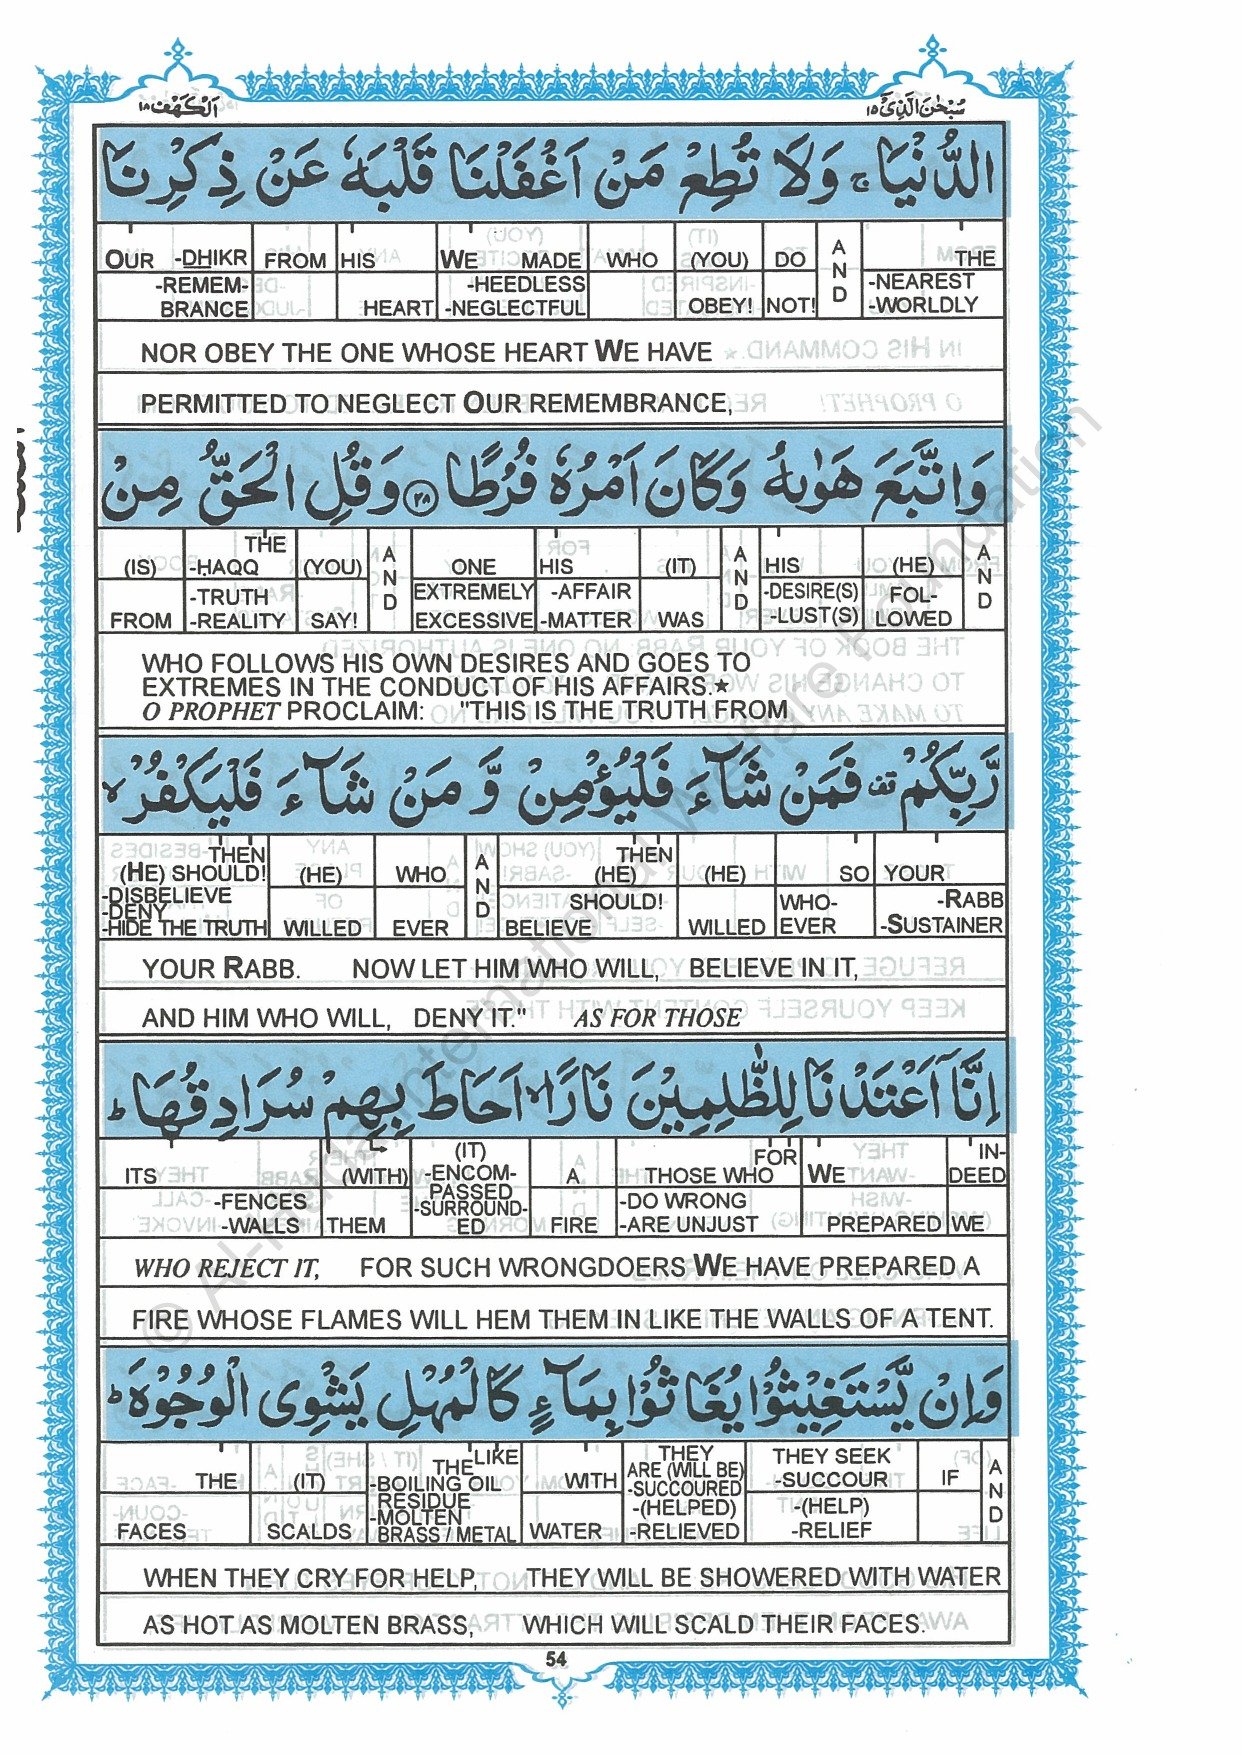 سُبْحٰنَ الَّذِيْٓ ١٥
اَلْكَهْف ١٨
الدُّنْيَا ۚ وَلَا تُطِعْ مَنْ اَغْفَلْنَا قَلْبَهٗ عَنْ ذِكْرِنَا
OUR -DHIKR FROM HIS WE MADE WHO (YOU) DO AND THE
-REMEM-BRANCE HEART -HEEDLESS -NEGLECTFUL OBEY! NOT! -NEAREST -WORLDLY
NOR OBEY THE ONE WHOSE HEART WE HAVE
PERMITTED TO NEGLECT OUR REMEMBRANCE,
وَاتَّبَعَ هَوٰىهُ وَكَانَ اَمْرُهٗ فُرُطًا ﴿٢٨﴾ وَقُلِ الْحَقُّ مِنْ
(IS) THE -HAQQ (YOU) AND ONE HIS (IT) AND HIS (HE) AND
FROM -TRUTH -REALITY SAY! EXTREMELY EXCESSIVE -AFFAIR -MATTER WAS -DESIRE(S) -LUST(S) FOL-LOWED
WHO FOLLOWS HIS OWN DESIRES AND GOES TO
EXTREMES IN THE CONDUCT OF HIS AFFAIRS.★
O PROPHET PROCLAIM: "THIS IS THE TRUTH FROM
رَّبِّكُمْ ۫ فَمَنْ شَآءَ فَلْيُؤْمِنْ وَّمَنْ شَآءَ فَلْيَكْفُرْ ۙ
THEN (HE) SHOULD! (HE) WHO AND THEN (HE) (HE) SO YOUR
-DISBELIEVE -DENY -HIDE THE TRUTH WILLED EVER SHOULD! BELIEVE WILLED WHO-EVER -RABB -SUSTAINER
YOUR RABB. NOW LET HIM WHO WILL, BELIEVE IN IT,
AND HIM WHO WILL, DENY IT." AS FOR THOSE
اِنَّآ اَعْتَدْنَا لِلظّٰلِمِيْنَ نَارًا ۙ اَحَاطَ بِهِمْ سُرَادِقُهَا ؕ
ITS (WITH) (IT) -ENCOM-PASSED A FOR THOSE WHO WE IN-DEED
-FENCES -WALLS THEM -SURROUND-ED FIRE -DO WRONG -ARE UNJUST PREPARED WE
WHO REJECT IT, FOR SUCH WRONGDOERS WE HAVE PREPARED A
FIRE WHOSE FLAMES WILL HEM THEM IN LIKE THE WALLS OF A TENT.
وَاِنْ يَّسْتَغِيْثُوْا يُغَاثُوْا بِمَآءٍ كَالْمُهْلِ يَشْوِى الْوُجُوْهَ ؕ
THE (IT) THE LIKE -BOILING OIL WITH THEY ARE (WILL BE) -SUCCOURED THEY SEEK -SUCCOUR IF AND
FACES SCALDS RESIDUE -MOLTEN BRASS / METAL WATER -(HELPED) -RELIEVED -(HELP) -RELIEF
WHEN THEY CRY FOR HELP, THEY WILL BE SHOWERED WITH WATER
AS HOT AS MOLTEN BRASS, WHICH WILL SCALD THEIR FACES.
54
© Al-
International Welfare Foundation